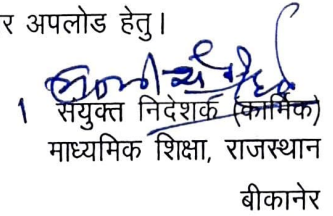 र अपलोड हेतु।
1 संयुक्त निदेशक (कार्मिक)
माध्यमिक शिक्षा, राजस्थान
बीकानेर